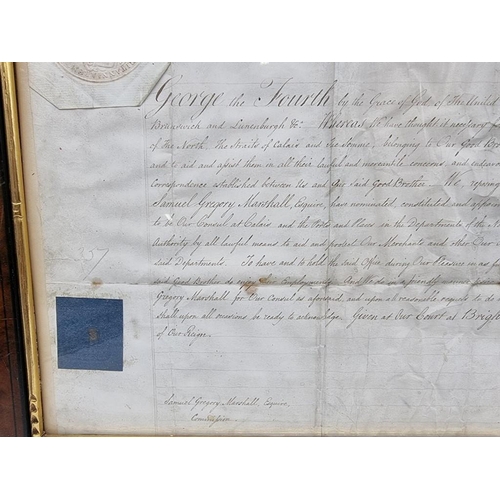 George the Fourth by the Grace of God of The United
Brunswick and Lunenburgh &c: Whereas We have thought it necessary
of The North, The Straits of Calais and The Somme, belonging to Our Good Bro
and to aid and assist them in all their lawful and mercantile concerns, and
Correspondence established between Us and Our said Good Brother. We, reposing
Samuel Gregory Marshall, Esquire, have nominated, constituted and appoin
to be Our Consul at Calais and the Ports and Places in the Departments of the
Authority by all lawful means to aid and protect Our Merchants and other Our
said Departments. To have and to hold the said Office during Our Pleasure in as
said Good Brother to
Gregory Marshall, for Our Consul as aforesaid, and upon all reasonable requests to
shall upon all occasions be ready to acknowledge. Given at Our Court at Brigh
of Our Reign.
Samuel Gregory Marshall, Esquire,